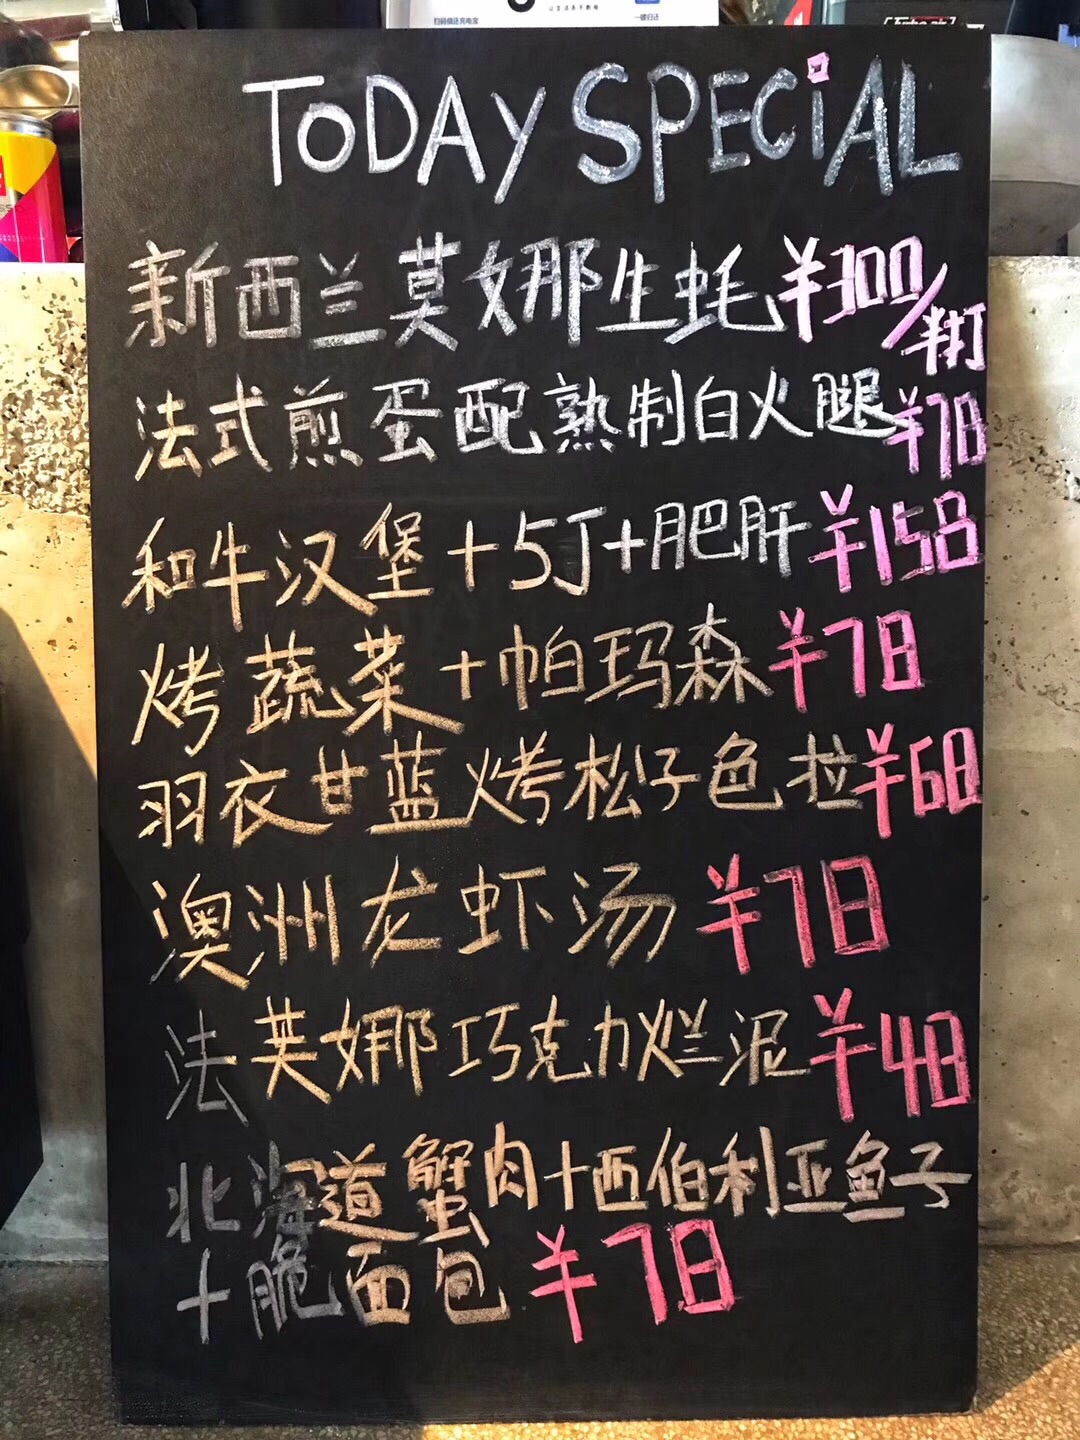 扫码借还充电宝
一键归还
TODAY SPECIAL
新西兰莫娜生蚝¥300/半打
法式煎蛋配熟制白火腿¥78
和牛汉堡+5J+肥肝¥158
烤蔬菜+帕玛森¥78
羽衣甘蓝烤松子色拉¥68
澳洲龙虾汤¥78
法芙娜巧克力烂泥¥48
北海道蟹肉+西伯利亚鱼子
+脆面包¥78